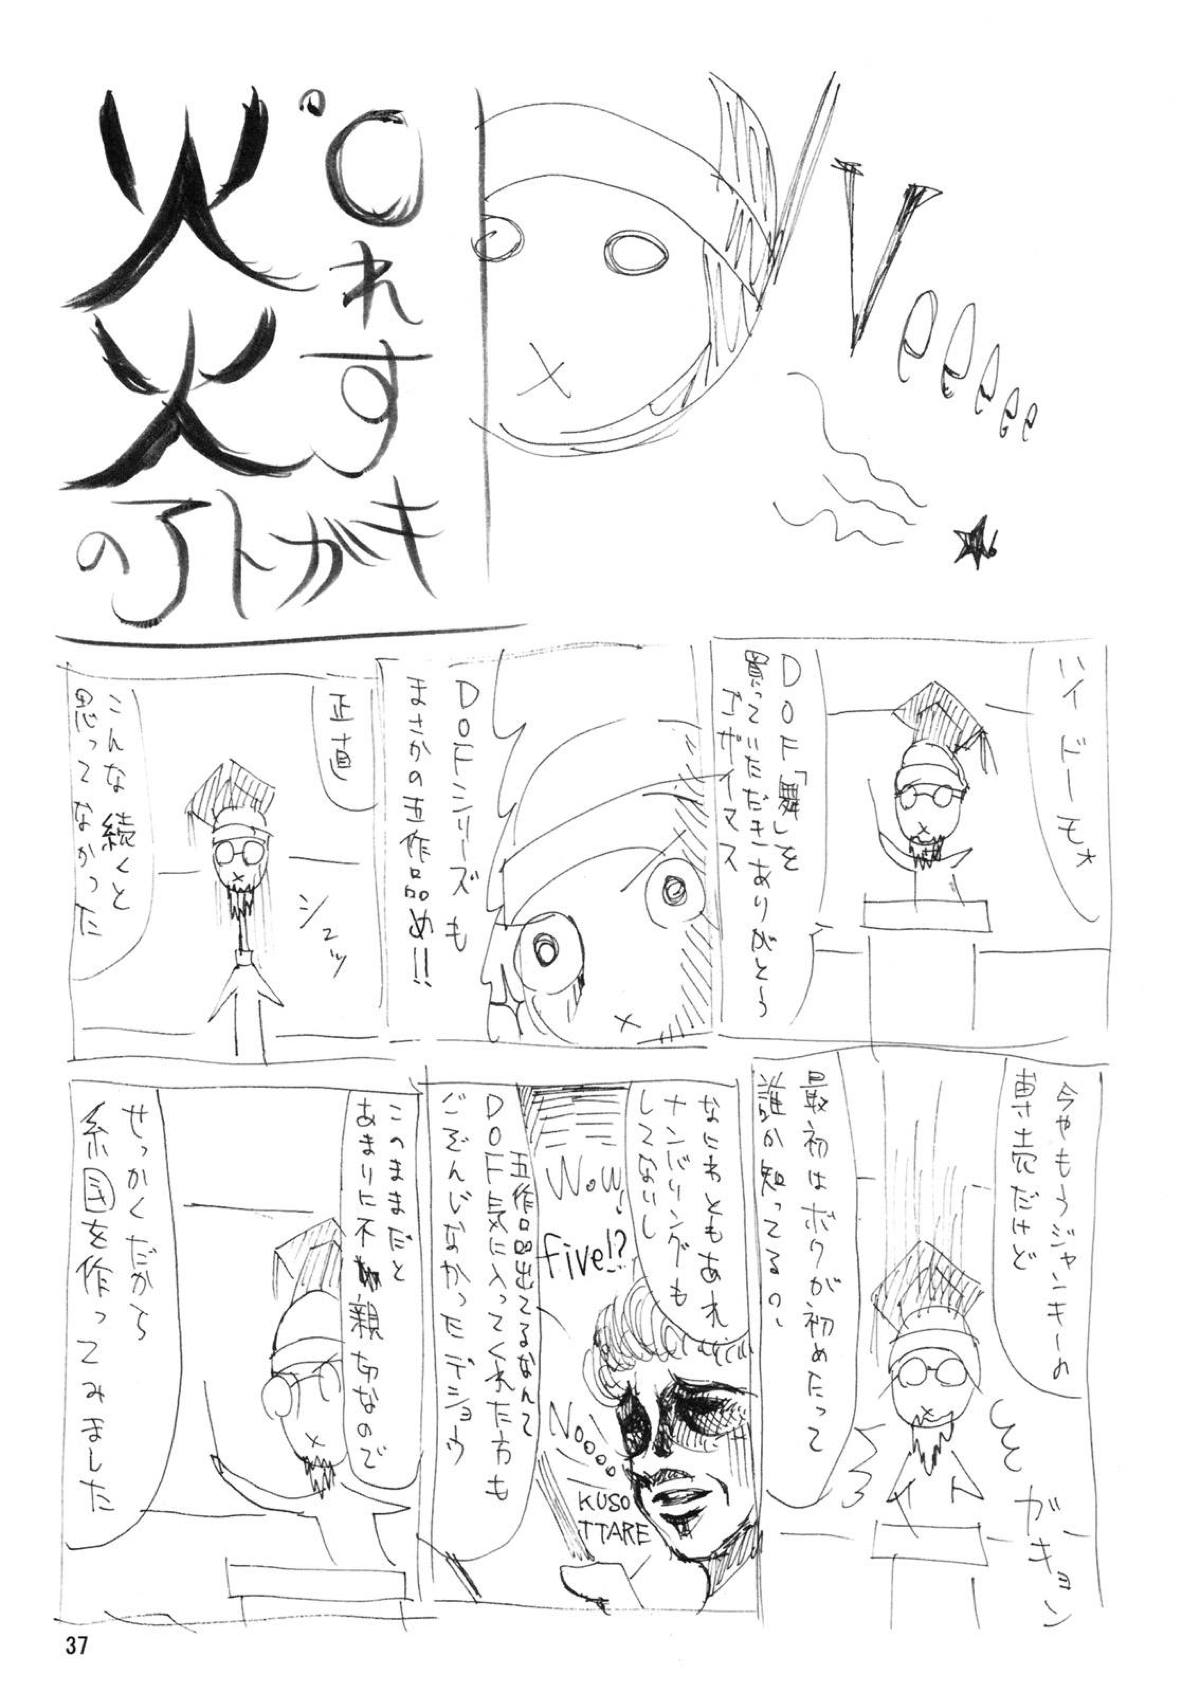 Veeeeee
れす
炎
のアトガキ
ハイドーモォ
DOF「舞」を
買っていただきありがとう
ゴザイマス
DOFシリーズも
まさかの五作品め!!
正直
シュッ
こんな続くと
思ってなかった
今やもうジャンキーの
専売だけど
最初はボクが初めたって
誰か知ってるの、
ガキョン
なにわともあれ
ナンバリングも
してないし
Wow!
five!?
五作品出てるなんて
DOF気に入ってくれた方も
ごぞんじなかったデショウ
Noooo
KUSO
TTARE
このままだと
あまりに不親切なので
せっかくだから
系図を作ってみました
37